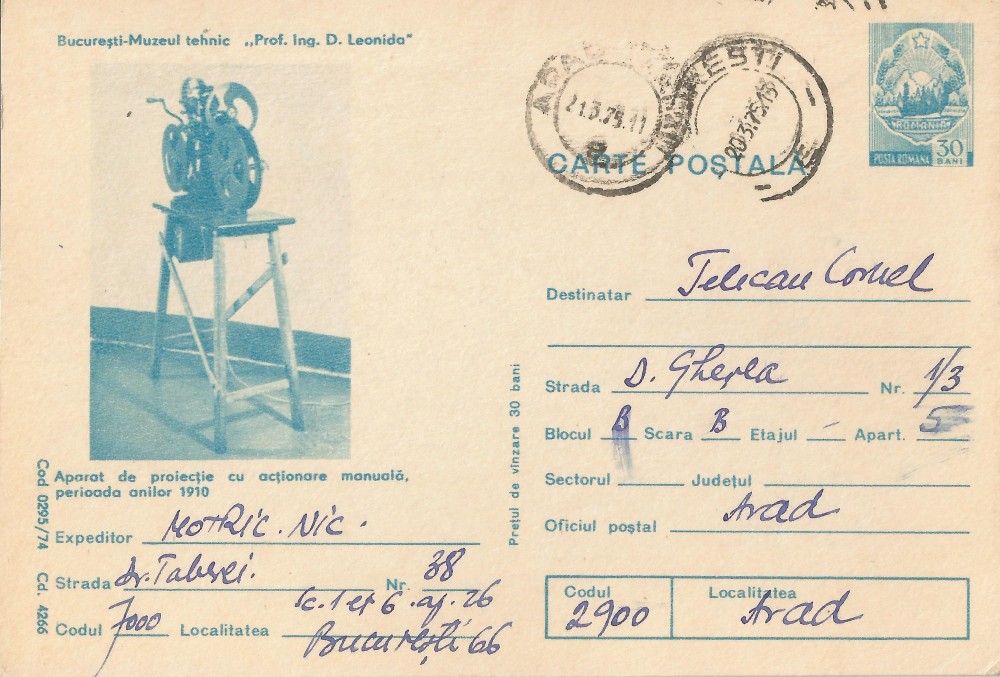 București-Muzeul tehnic ,,Prof. Ing. D. Leonida"
Aparat de proiecție cu acționare manuală,
perioada anilor 1910
Cod 0295/74 Cd. 4266
Expeditor Motric. Nic.
Strada Dr. Taberei. Nr. 38
sc. 1 et 6 . ap. 26
Codul 7000 Localitatea București 66
Prețul de vînzare 30 bani
ARAD
21.3.75.11
BUCUREȘTI
20.3.75.18
ROMÂNIA
POSTA ROMANA 30 BANI
CARTE POȘTALĂ
Destinatar Telecan Cornel
Strada D. Gherea Nr. 1/3
Blocul B Scara B Etajul – Apart. 5
Sectorul Județul
Oficiul poștal Arad
Codul Localitatea
2900 Arad